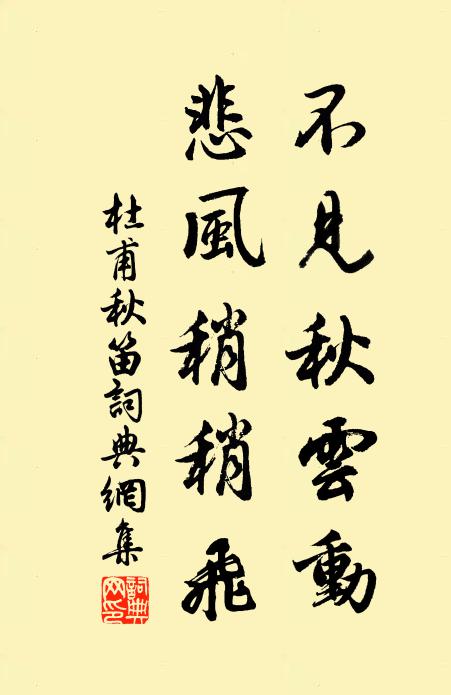 不見秋雲動
悲風稍稍飛
杜甫秋笛詞典網集